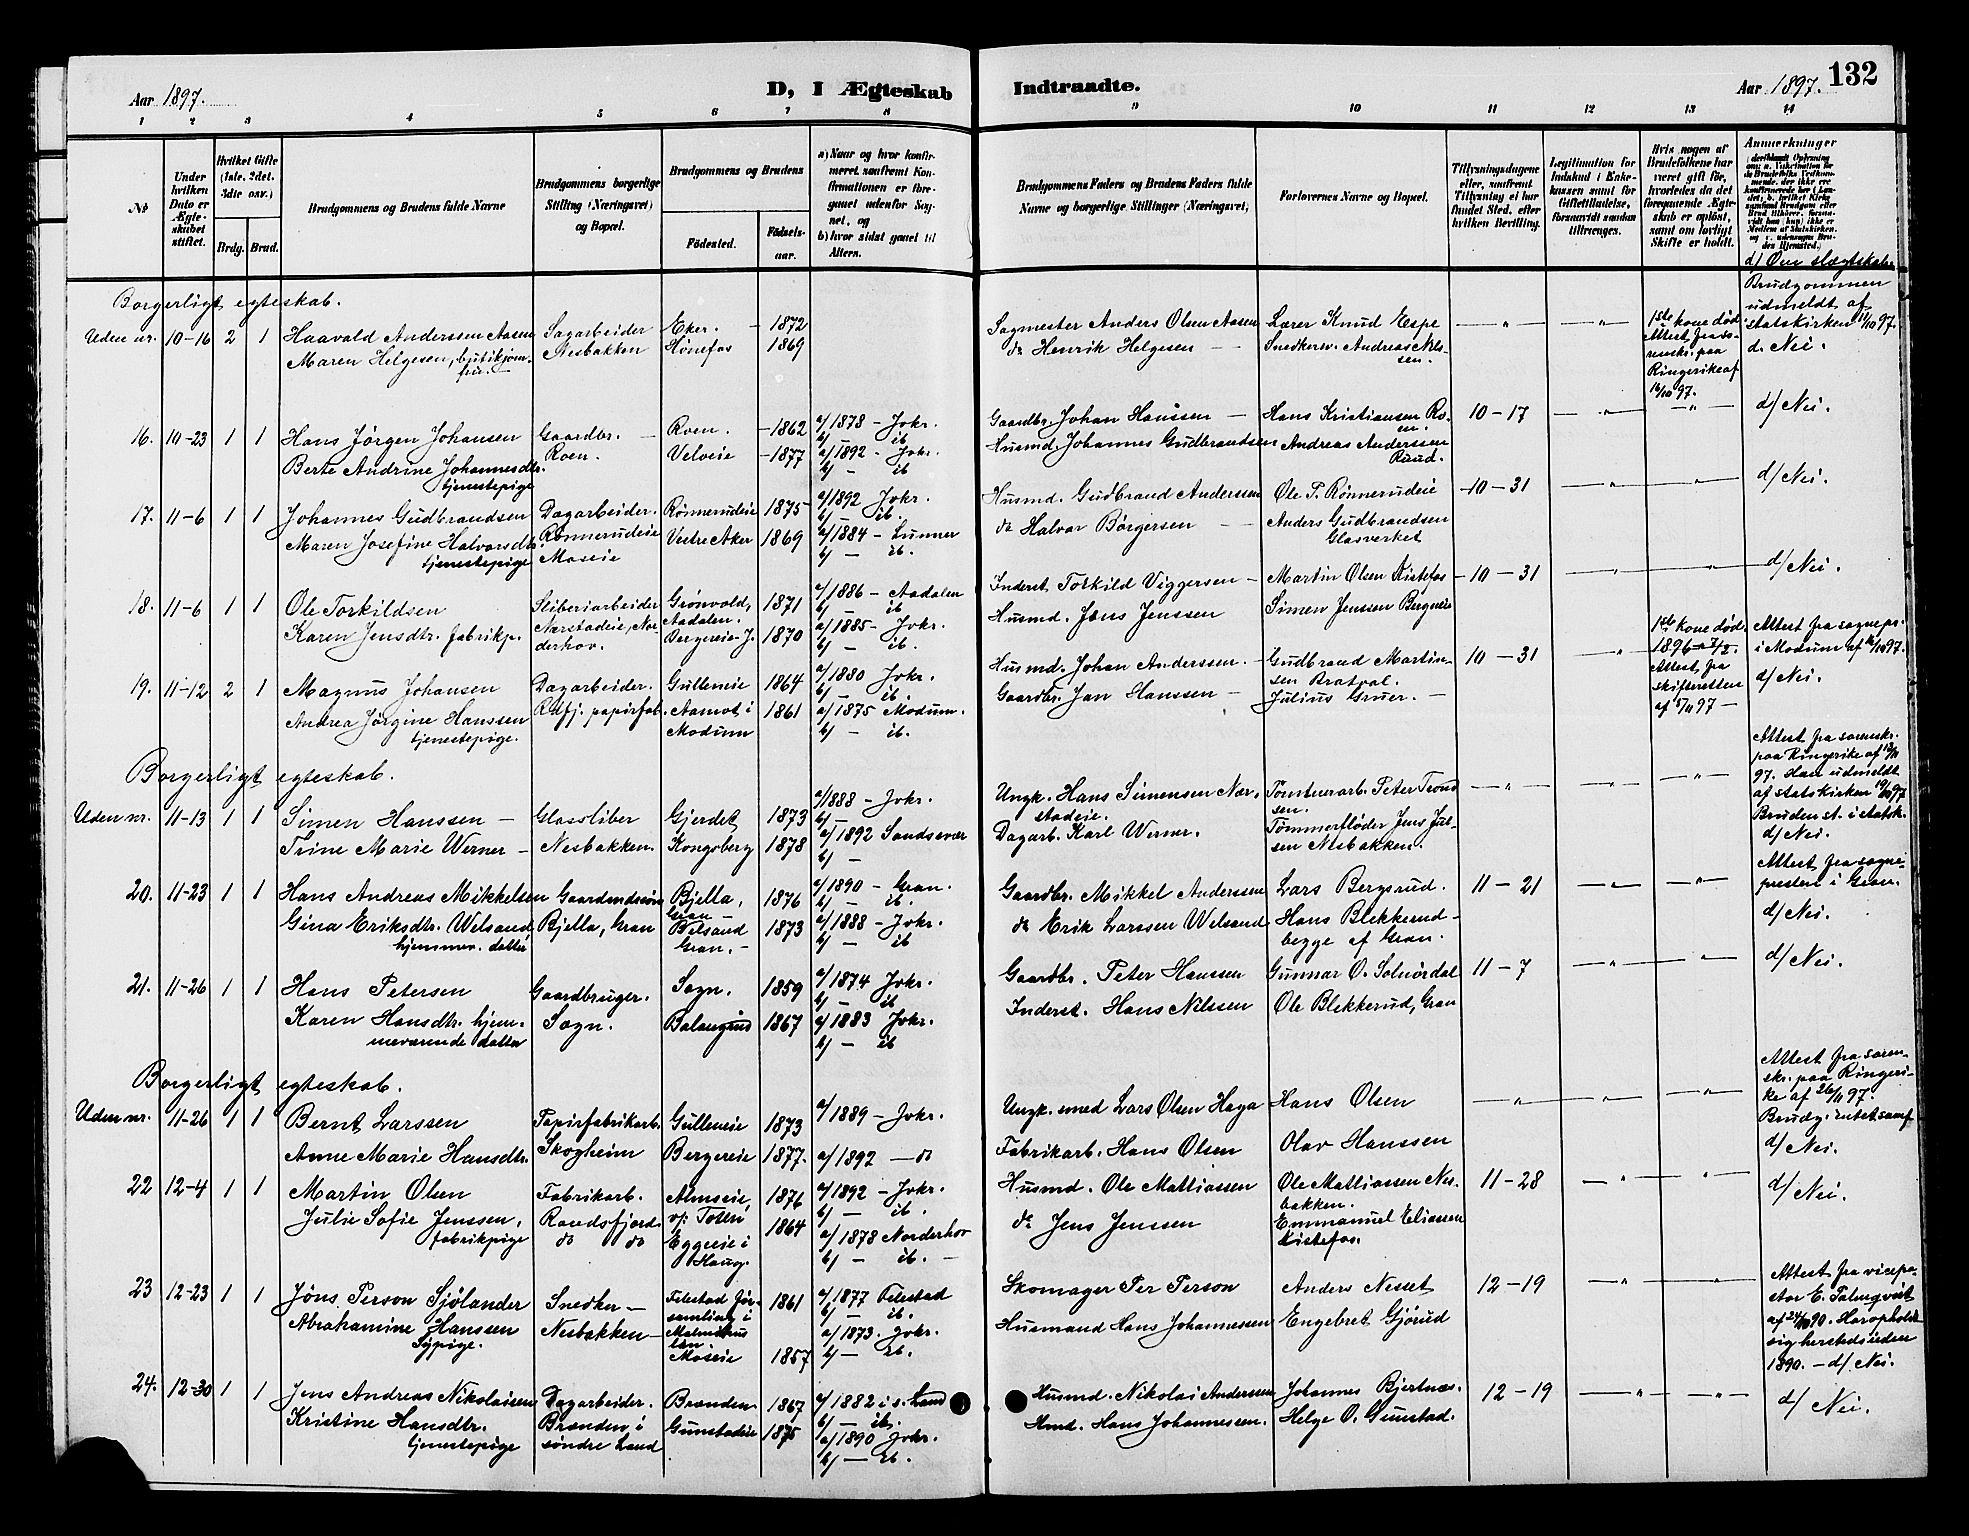 Aar 1897. D, I Ægteskab Indtraadte. Aar 1897. 132
1 2 3 4 5 6 7 8 9 10 11 12 13 14
No
Under hvilken Dato er Ægteskabet stiftet.
Hvilket Gifte (1ste, 2det, 3die osv.)
Brdg. Brud.
Brudgommens og Brudens fulde Navne
Brudgommens borgerlige Stilling (Næringsvei) og Bopæl.
Brudgommens og Brudens
Fødested. Fødselsaar.
a) Naar og hvor konfirmeret samt Konfirmationen er foregaaet udenfor Sognet, og
b) hvor sidst gaaet til Alters.
Brudgommens Faders og Brudens Faders fulde Navne og borgerlige Stillinger (Næringsvei)
Forlovernes Navne og Bopæl.
Tillysningsdagene eller, saafremt Tillysning ei har fundet Sted, efter hvilken Bevilling.
Legitimation for Indskud i Enkekassen samt for Giftetilladelse, forsaavidt saadan tiltrænges.
Hvis nogen af Brudefolkene har været gift før, hvorledes da det foregaaende Ægteskab er opløst, samt om lovligt Skifte er holdt.
Anmerkninger
d/ Om slægtskab.
Borgerligt egteskab.
Uden nr. 10-16 2 1 Haavald Anderssen Aasen
Maren Helgesen, butikjomfru.
Sagarbeider
Nesbakken
Eker. 1872
Hønefos 1869
Sagmester Anders Olsen Aasen
do Henrik Helgesen
Lærer Knud Espe
Snedkersv. Andreas Nilssen.
1ste kone død
Attest fra sorenskr. paa
Ringerike af
16/10 97.
Brudgommen
udmeldt af
statskirken 11/10 97.
d. Nei.
16. 10-23 1 1 Hans Jørgen Johansen
Berte Andrine Johannesdtr.
tjenestepige
Gaardbr.
Roen.
Roen. 1862
Velveie 1877
a/ 1878 - Jokr.
b/ - ib
a/ 1892 - Jokr.
b/ - ib
Gaardbr. Johan Hanssen
Husmd. Johannes Gudbrandsen
Hans Kristiansen Roen.
Andreas Anderssen
Ruud.
10-17
d/ Nei.
17. 11-6 1 1 Johannes Gudbrandsen
Maren Josefine Halvorsdtr.
tjenestepige
Dagarbeider.
Rønnerudeie
Moseie
Rønnerudeie 1875
Vestre Aker 1869
a/ 1892 Jokr.
b/ - ib.
a/ 1884 - Lunner
b/ - ib.
Husmd. Gudbrand Anderssen
do Halvor Børgersen
Ole P. Rønnerudeie
Anders Gudbrandsen
Glasverket
10-31
d/ Nei.
18. 11-6 1 1 Ole Torkildsen
Karen Jensdtr. fabrikp.
Sliberiarbeider
Nærstadeie, Norderhov.
Grønvold, 1871
Aadalen.
Bergereie J. 1870
a/ 1886 - Aadalen
b/ ib
a/ 1885 - Jokr.
b/ - ib.
Inderst Torkild Viggersen
Husmd. Jens Jenssen
Martin Olsen Kistefos
Simen Jenssen Bergereie
10-31
d/ Nei.
19. 11-12 2 1 Magnus Johansen
Andrea Jørgine Hanssen
tjenestepige.
Dagarbeider.
Rdfj. papirfab.
Gulleneie 1864
Aamot i 1861
Modum
a/ 1880 Jokr.
b/ - ib.
a/ 1875 Modum.
b/ - ib.
Husmd. Johan Anderssen
Gaardbr. Jan Hanssen
Gudbrand Martinsen Bratval.
Julius Gruer.
10-31
1ste kone død
1896
Attest fra
skifteretten
af 5/11 97
Attest fra sognepr.
i Modum af 16/10 97.
d/ Nei.
Borgerligt egteskab.
Uden nr. 11-13 1 1 Simen Hanssen
Trine Marie Werner
Glassliber
Nesbakken.
Gjerdet 1873
Kongsberg 1878
a/ 1888 - Jokr.
b/ -
a/ 1892 Sandsvær
b/ -
Ungk. Hans Simensen Nærstadeie.
Dagarb. Karl Werner.
Tømturarb. Peter Trondsen.
Tømmerfløder Jens Julsen Nesbakken.
Attest fra sorenskr.
paa Ringerike af 13/11
97. Han udmeldt
af statskirken 19/10 97
Bruden st. i statsk.
d/ Nei.
20. 11-23 1 1 Hans Andreas Mikkelsen
Gina Eriksdtr. Welsand
hjemmev. datter
Gaardmandssøn
Bjella, Gran
Bjella, 1876
Gran
Velsand 1873
Gran.
a/ 1890 - Gran.
b/ - ib.
a/ 1888 - Jokr.
b/ - ib
Gaardbr. Mikkel Anderssen
do Erik Larssen Welsand
Lars Bergsrud.
Hans Blekkerud
begge af Gran.
11-21
Attest fra sognepresten i Gran.
d/ Nei.
21. 11-26 1 1 Hans Petersen
Karen Hansdtr. hjemmeværende datter
Gaardbruger.
Sogn.
Sogn. 1859
Balangrud 1867
a/ 1874 Jokr.
b/ - ib
a/ 1883 Jokr.
b/ - ib
Gaardbr. Peter Hanssen
Inderst. Hans Nilssen
Gunnar O. Solnørdal
Ole Blekkerud, Gran
11-7
d/ Nei.
Borgerligt egteskab.
Uden nr. 11-26 1 1 Bernt Larssen
Anne Marie Hansdtr.
Papirfabrikarb.
Skogheim
Gulleneie 1873
Bergereie 1877.
a/ 1889 - Jokr.
a/ 1892 - do
Ungk. smed Lars Olsen Haga
Fabrikarb. Hans Olsen
Hans Olsen
Olav Hanssen
Attest fra sorenskr. paa Ringerike af 26/11 97.
Brudg. i intet samf.
d/ Nei.
22 12-4 1 1 Martin Olsen
Julie Sofie Jenssen,
fabrikpige
Fabrikarb.
Randsfjord.
do do
Almseie, 1876
v. Toten
Eggeeie i 1864
Haug.
a/ 1892 - Jokr.
b/ - ib.
a/ 1878 Norderhov
b/ - ib.
Husmd. Ole Mattiassen
do Jens Jenssen
Ole Mattiassen Nesbakken.
Emmanuel Eliassen
Kistefos.
11-28
d/ Nei.
23 12-23 1 1 Jöns Person Sjölander
Abrahamine Hanssen
Sypige.
Snedker
Nesbakken
Felestad församling i 1861
Malmöhus
län
Moseie 1857
a/ 1877 Felestad
b/ - ib.
a/ 1873. Jokr.
b/ - ib.
Skomager Per Person
Husmand Hans Johannessen
Anders Nesset
Engebret Gjørud
12-19
Attest fra vicepastor E. Palmqvist
af 24/10 90. Har opholdt
sig hersteds siden
1890. - d/ Nei.
24. 12-30 1 1 Jens Andreas Nikolaisen
Kristine Hansdtr.
tjenestepige
Dagarbeider.
Branden i
søndre Land
Branden 1867
Gunstadeie 1875
a/ 1882 i s. Land
b/ - ib.
a/ 1890 Jokr.
b/ - ib.
Husmd. Nikolai Anderssen
Hmd. Hans Johannessen.
Johannes Bjertnæs.
Helge O. Gunstad.
12-19
d/ Nei.